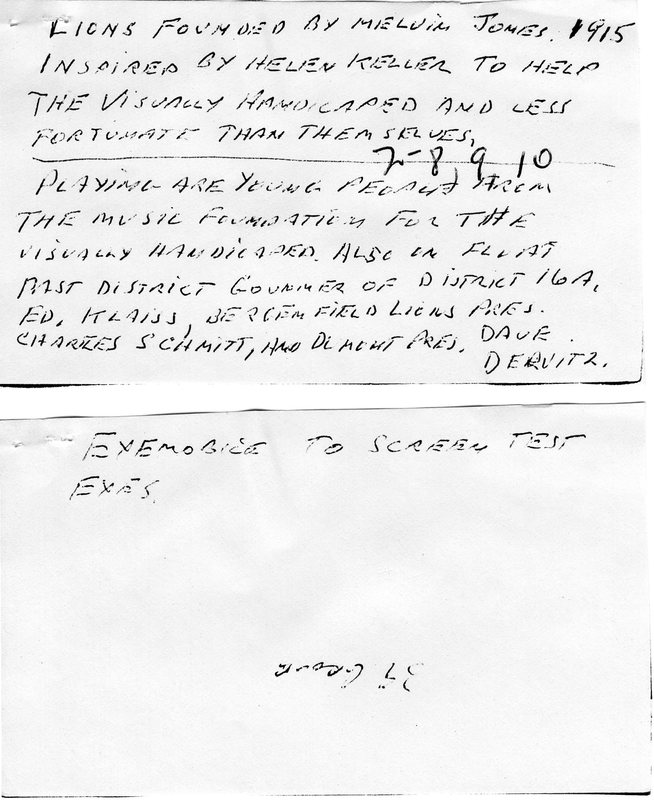 LIONS FOUNDED BY MELVIN JONES. 1915
INSPIRED BY HELEN KELLER TO HELP
THE VISUALLY HANDICAPED AND LESS
FORTUNATE THAN THEMSELVES.
2-8, 9 10
PLAYING ARE YOUNG PEOPLE FROM
THE MUSIC FOUNDATION FOR THE
VISUALLY HANDICAPED. ALSO ON FLOAT
PAST DISTRICT GOUNMER OF DISTRICT 16A,
ED. KLAISS, BERGENFIELD LIONS PRES.
CHARLES SCHMITT, AND DUMONT PRES. DAVE
DERVITZ.
EYEMOBILE TO SCREEN TEST
EYES.
39